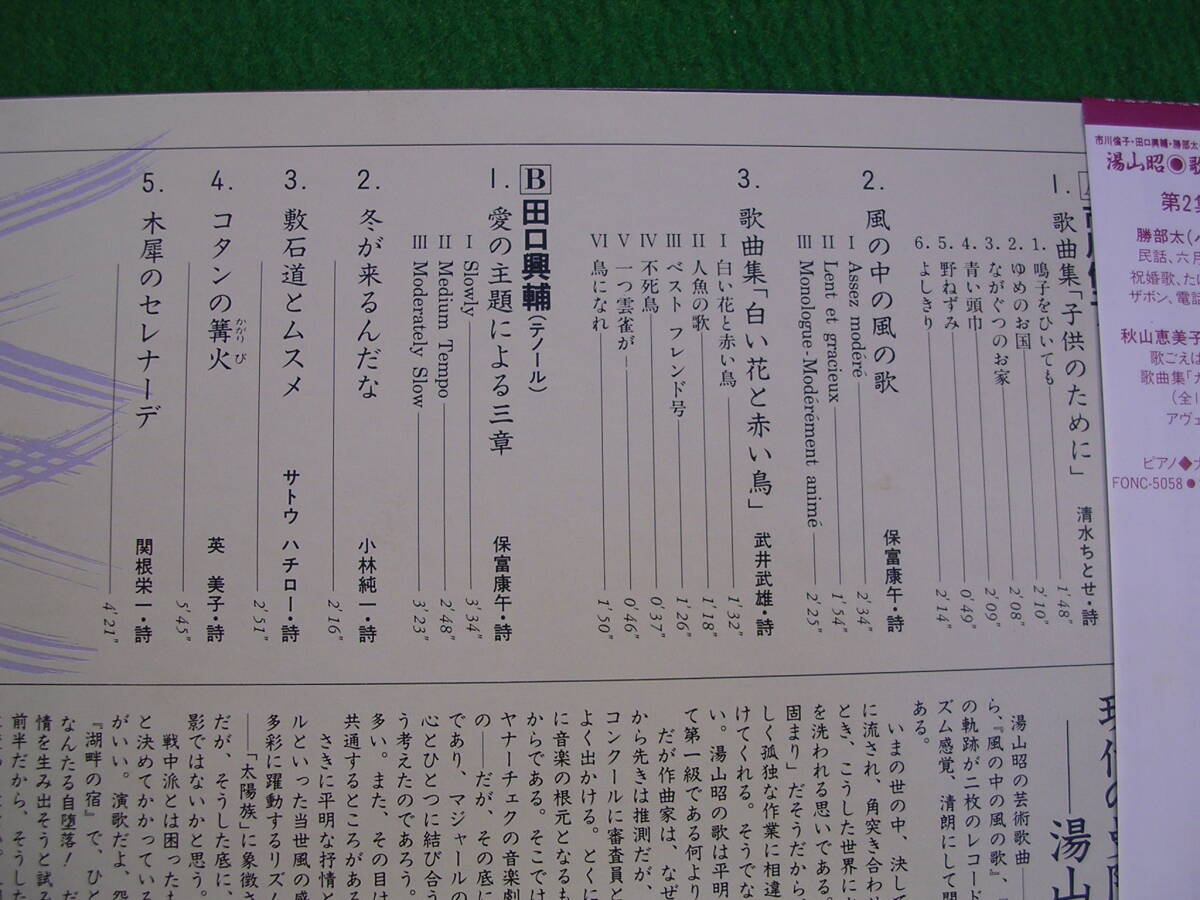 市川倫子・田口興輔・勝部太・
湯山昭◉歌
第2集
勝部太(バ
民話、六月
祝婚歌、たに
ザボン、電話
秋山恵美子
歌ごえは
歌曲集「カ
(全1
アヴェ
ピアノ◆
FONC-5058●
1. 歌曲集「子供のために」 清水ちとせ・詩
1. 鳴子をひいても 1'48"
2. ゆめのお国 2'10"
3. ながぐつのお家 2'08"
4. 青い頭巾 2'09"
5. 野ねずみ 0'49"
6. よしきり 2'14"
2. 風の中の風の歌 保富康午・詩
I Assez modéré 2'34"
II Lent et gracieux 1'54"
III Monologue-Modérément animé 2'25"
3. 歌曲集「白い花と赤い鳥」 武井武雄・詩
I 白い花と赤い鳥 1'32"
II 人魚の歌 1'18"
III ベスト フレンド号 1'26"
IV 不死鳥 0'37"
V 一つ雲雀が 0'46"
VI 鳥になれ 1'50"
B 田口興輔(テノール)
1. 愛の主題による三章 保富康午・詩
I Slowly 3'34"
II Medium Tempo 2'48"
III Moderately Slow 3'23"
2. 冬が来るんだな 小林純一・詩
2'16"
3. 敷石道とムスメ サトウ ハチロー・詩
2'51"
4. コタンの篝火 英 美子・詩
かがり び
5'45"
5. 木犀のセレナーデ 関根栄一・詩
4'21"
——湯山
湯山昭の芸術歌曲——
ら、『風の中の風の歌』、『
の軌跡が二枚のレコード
ズム感覚、清朗にして閉
ある。
いまの世の中、決して
に流され、角突き合わせ
とき、こうした世界に
を洗われる思いである。
固まり」だそうだから
しく孤独な作業に相違
けてくれる。そうでな
い。湯山昭の歌は平明
て第一級である何より
だが作曲家は、なぜ
から先きは推測だが、
コンクールに審査員と
よく出かける。とくに
に音楽の根元となるも
からである。そこでは
ヤナーチェクの音楽劇
の——だが、その底に
であり、マジャールの
心とひとつに結び合う
う考えたのであろう。
多い。また、その目は
共通するところがある
さきに平明な抒情と
ルといった当世風の感
多彩に躍動するリズム
——「太陽族」に象徴さ
だが、そうした底に、
影ではないかと思う。
戦中派とは困ったも
と決めてかかっている
がいい。演歌だよ、怨
『湖畔の宿』で、ひと
なんたる自堕落! だ
情を生み出そうと試み
前半だから、そうした